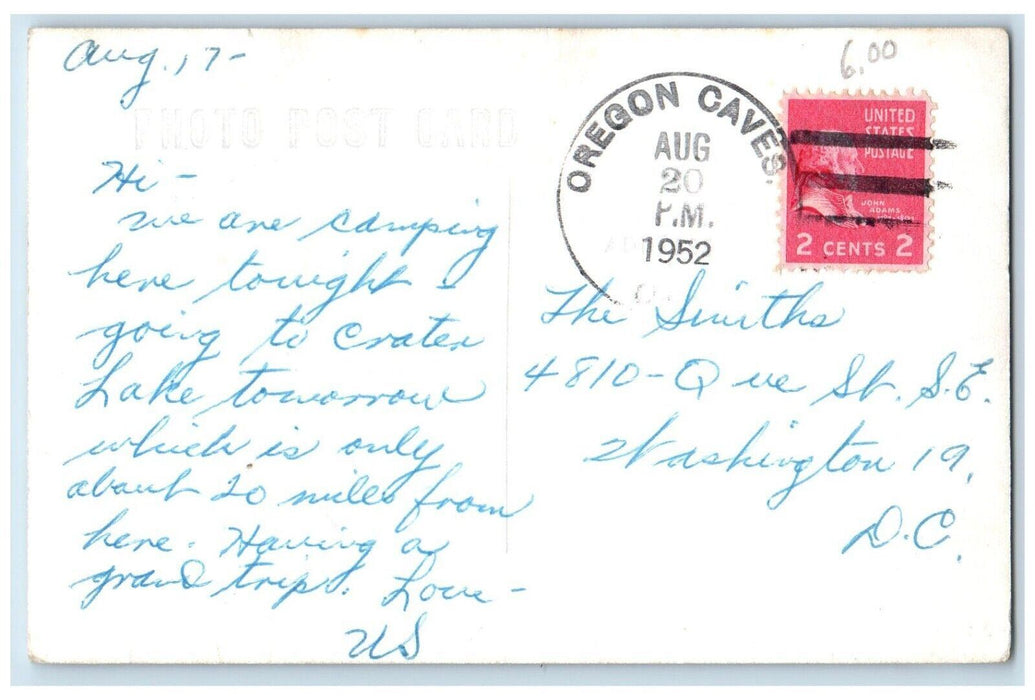 Aug. 17-
6.00
PHOTO POST CARD
OREGON CAVES.
AUG
20
P.M.
1952
UNITED
STATES
POSTAGE
JOHN
ADAMS
2 CENTS 2
Hi -
we are camping
here tonight -
going to Crater
Lake tomorrow
which is only
about 20 miles from
here. Having a
grand trip. Love -
US
The Smiths
4810 - Que St. S.E.
Washington 19,
D.C.